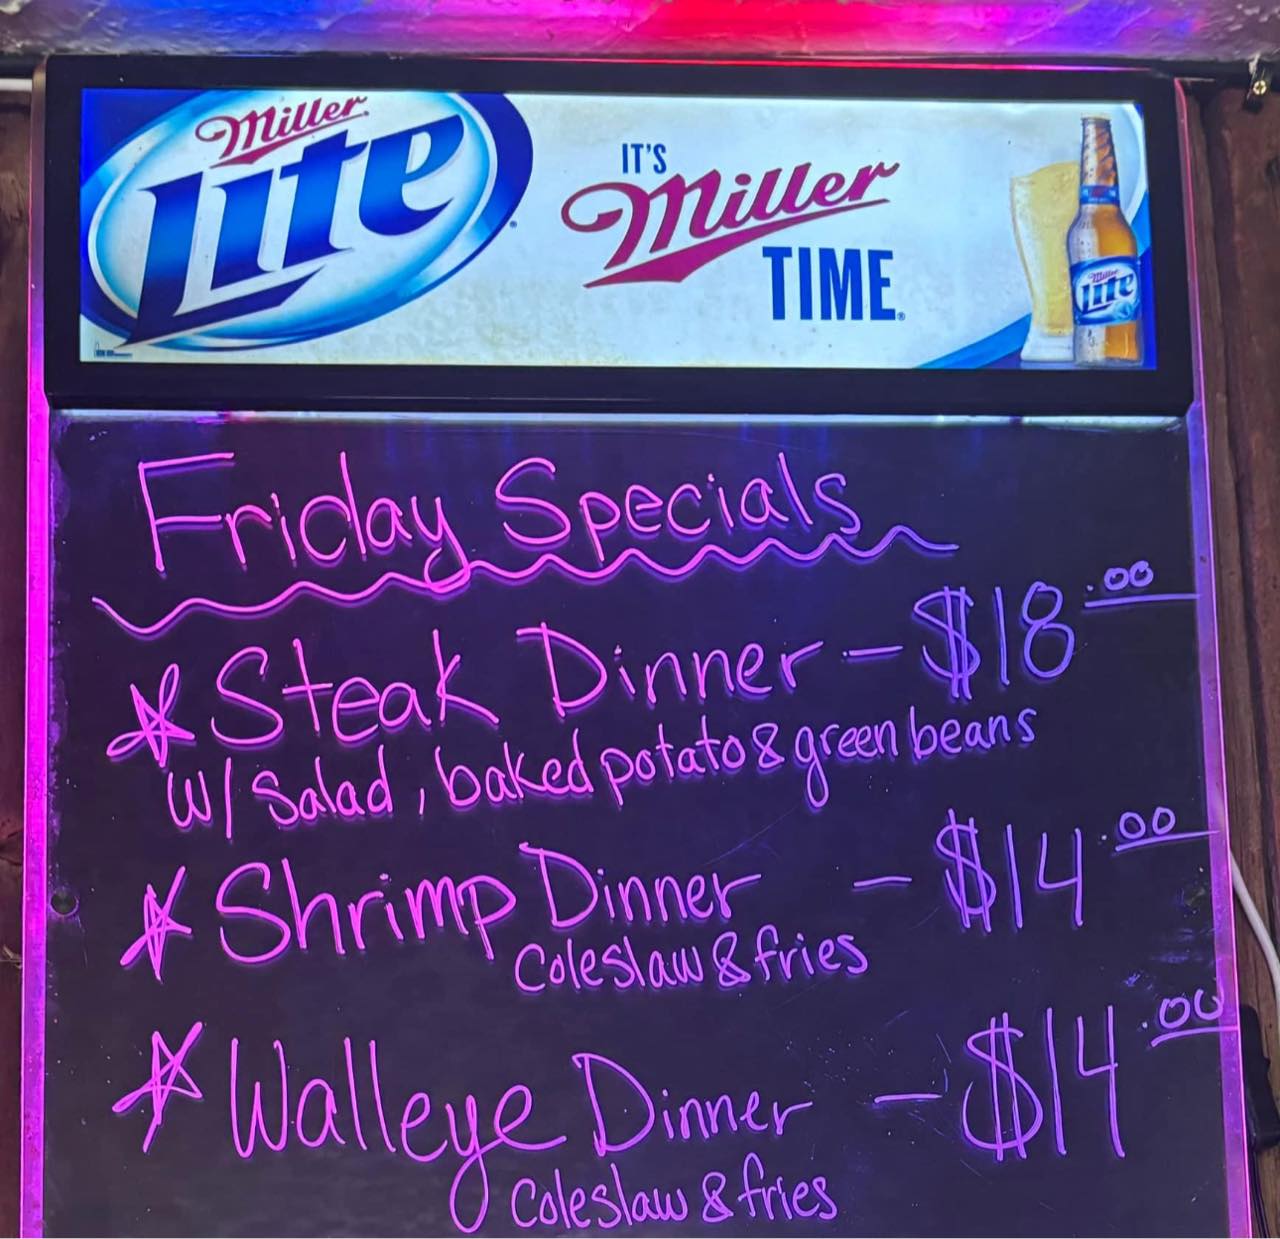 Miller
Lite
IT'S
Miller
TIME.
Miller
Lite
Friday Specials
Steak Dinner - $18.00
w/ Salad, baked potato & green beans
Shrimp Dinner - $14.00
Coleslaw & fries
Walleye Dinner - $14.00
Coleslaw & fries